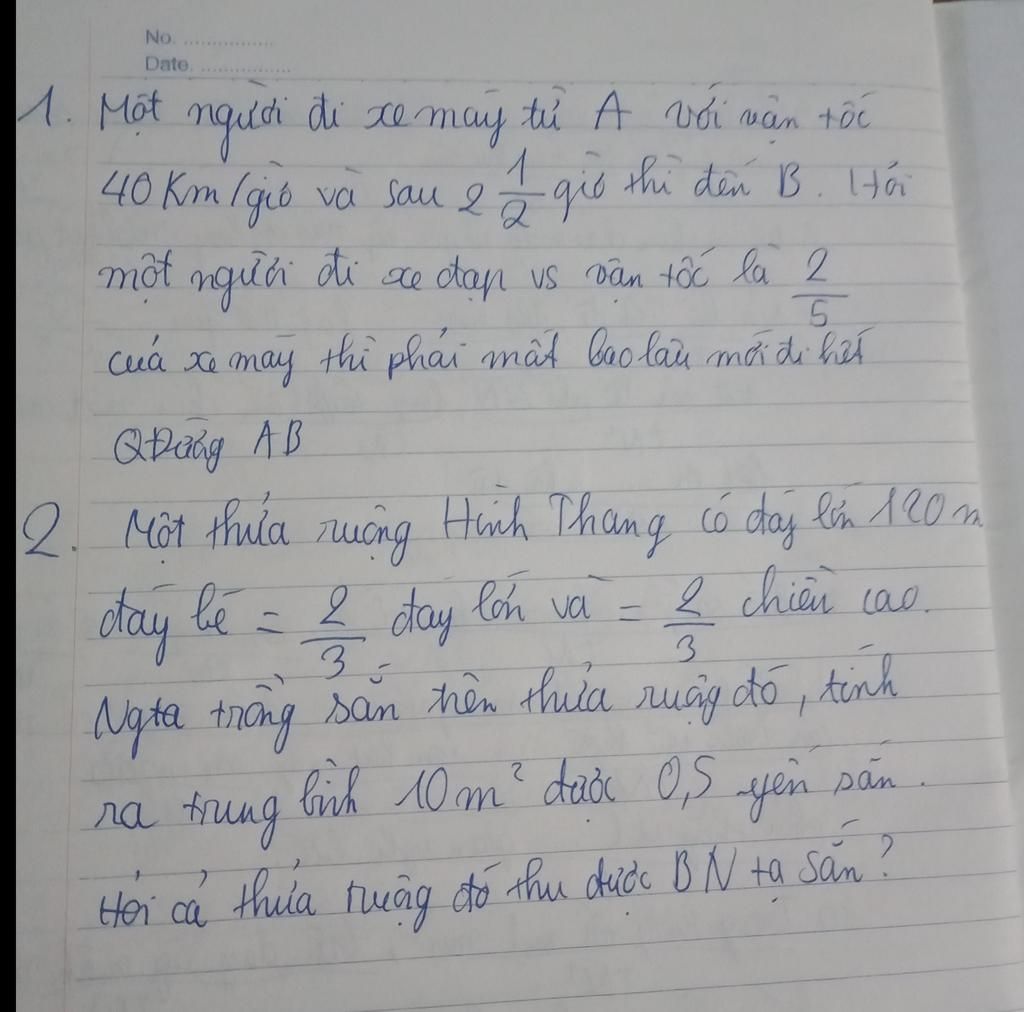 No. ................
Date. ................
1. Một người đi xe máy từ A với vận tốc
40 Km/giờ và sau 2 1/2 giờ thì đến B. Hỏi
một người đi xe đạp vs vận tốc là 2/5
của xe máy thì phải mất bao lâu mới đi hết
QĐường AB
2. Một thửa ruộng Hình Thang có đáy lớn 120 m
đáy bé = 2/3 đáy lớn và = 2/3 chiều cao.
Ngta trồng sắn trên thửa ruộng đó, tính
ra trung bình 10 m² được 0,5 yến sắn.
Hỏi cả thửa ruộng đó thu được BN tạ sắn?